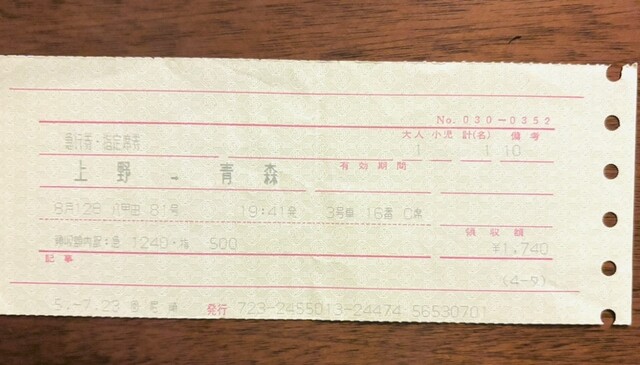 No. 030-0352
大人 小児 計(名) 備考
急行券・指定席券 1 1 10
上野 → 青森 有効期間
8月12日 八甲田 81号 19:41発 3号車 16番 C席
領収額
領収額内訳:急 1240・指 500 ¥1,740
記事
(4-9)
5.-7.23 発行 723-2455013-24474 56530701